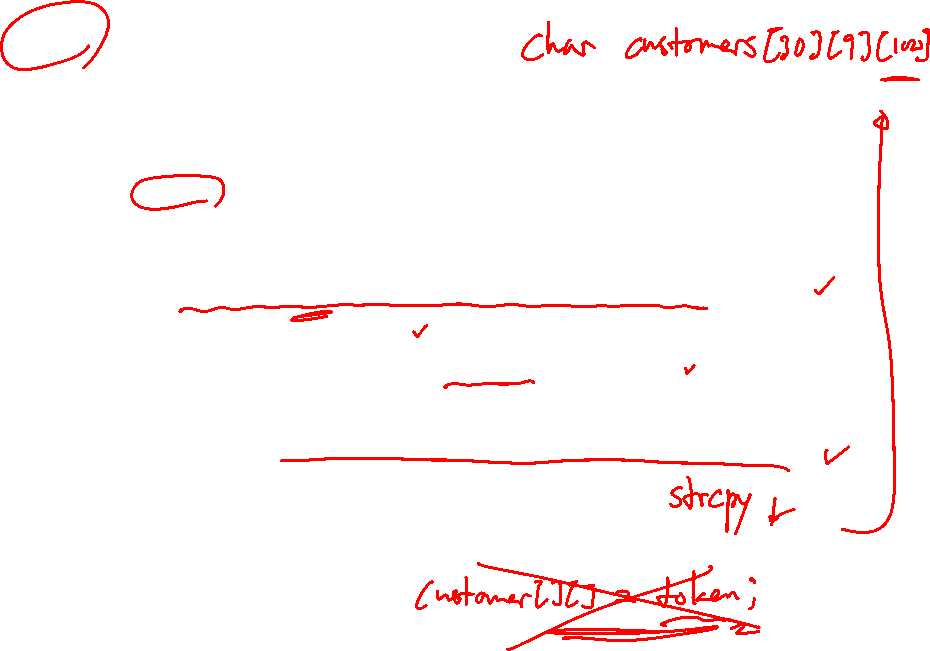 char customers[30][9][100]
strcpy
customer[][] = token;